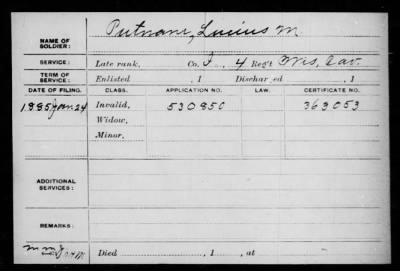 NAME OF SOLDIER: Putnam, Lucius M.
SERVICE: Late rank, Co. F, 4 Reg't Wis. Cav.
TERM OF SERVICE: Enlisted , 1 Discharged , 1
DATE OF FILING. CLASS. APPLICATION NO. LAW. CERTIFICATE NO.
1885 Jan 24 Invalid, 530850 363053
Widow,
Minor,
ADDITIONAL SERVICES:
REMARKS:
Died , 1 , at